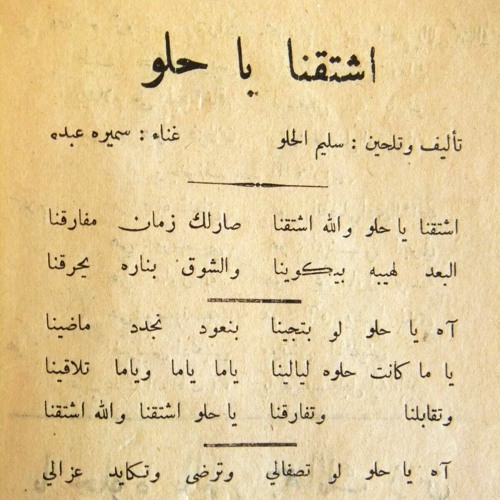 اشتقنا يا حلو
تأليف وتلحين : سليم الحلو غناء : سميره عبده
اشتقنا يا حلو والله اشتقنا صارلك زمان مفارقنا
البعد لهيبه بيكوينا والشوق بناره يحرقنا
آه يا حلو لو بتجينا بنعود نجدد ماضينا
يا ما كانت حلوه ليالينا ياما ياما وياما تلاقينا
وتقابلنا وتفارقنا يا حلو اشتقنا والله اشتقنا
آه يا حلو لو تصفالي وترضى وتكايد عزالي